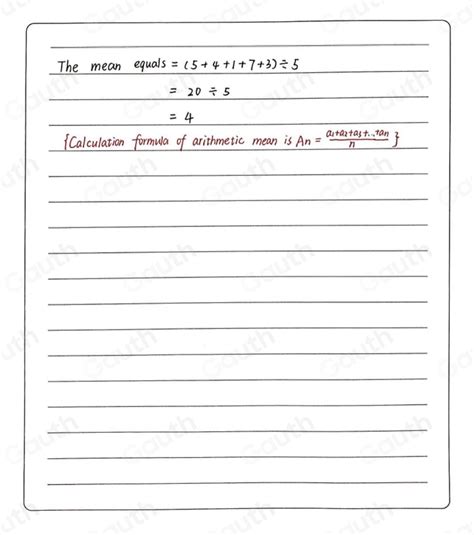 The mean equals = (5+4+1+7+3)÷5
= 20 ÷ 5
= 4
{Calculation formula of arithmetic mean is An = a1+a2+a3+...+an / n}
Gauth